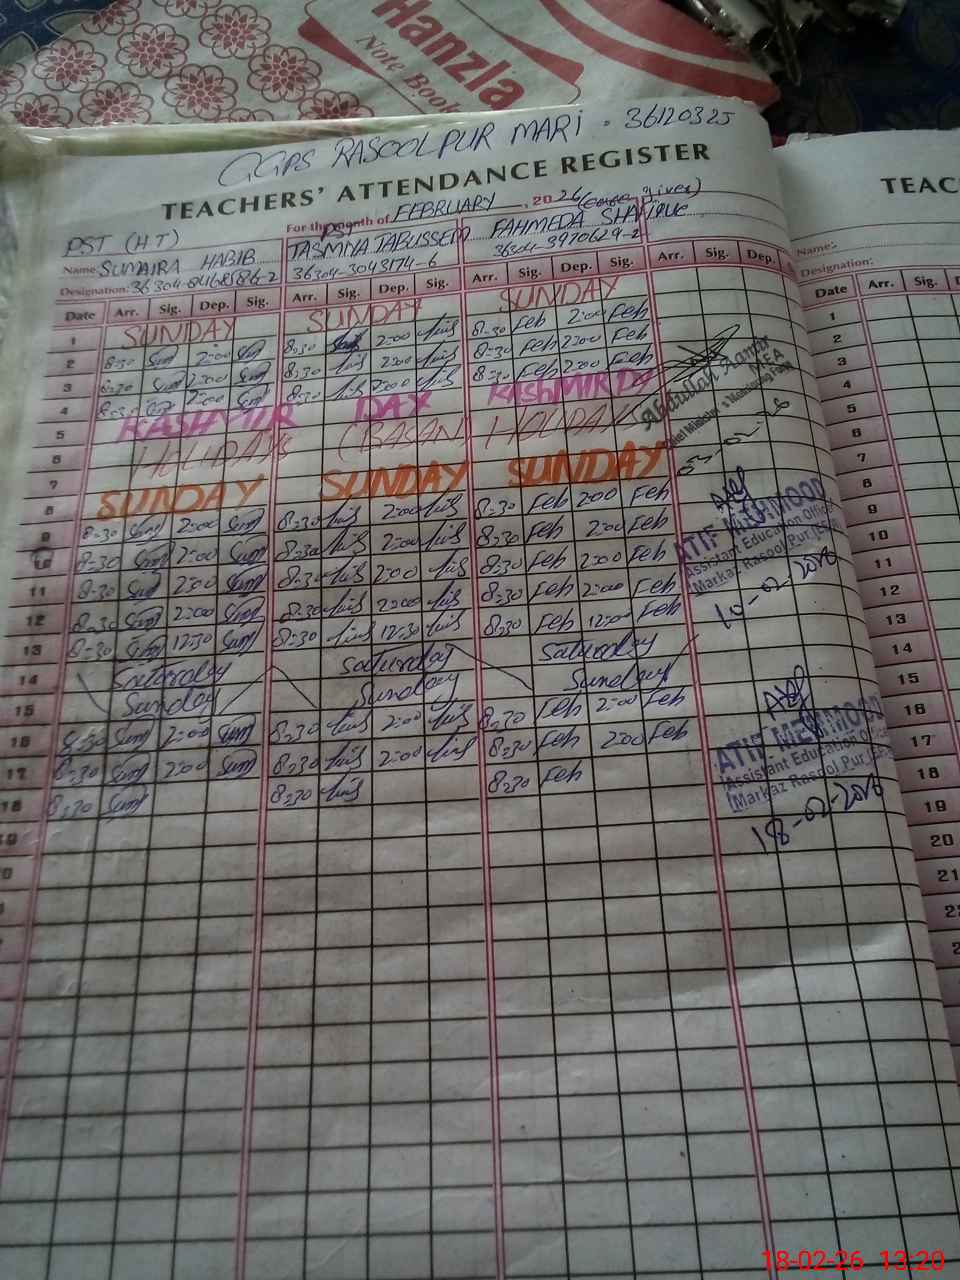 Hanzla
Note Book
GGPS RASOOLPUR MARI . 36120325
TEACHERS' ATTENDANCE REGISTER
For the month of FEBRUARY, 2026
PST (HT) PST (care giver)
Name SUMAIRA HABIB TASMINA TABUSSEM FAHMEDA
Designation: 36304-3043174-6 36304-3970629-2
Date Arr. Sig. Dep. Sig. Arr. Sig. Dep. Sig. Arr. Sig. Dep. Sig. Arr. Sig. Dep.
1 SUNDAY SUNDAY SUNDAY
2 8:30 Sum 2:00 Sum 8:30 2:00 8:30 Feh 2:00 Feh
3 8:30 Sum 2:00 Sum 8:30 2:00 8:30 Feh 2:00 Feh
4 8:30 2:00 Sum 8:30 2:00 8:30 Feh 2:00 Feh
5 KASHMIR DAY KASHMIR DAY
6 HOLIDAYS (BASANT) HOLIDAYS
7
8 SUNDAY SUNDAY SUNDAY
9 8:30 Sum 2:00 Sum 8:30 2:00 8:30 Feh 2:00 Feh
10 8:30 Sum 2:00 Sum 8:30 2:00 8:30 Feh 2:00 Feh
11 8:30 Sum 2:00 Sum 8:30 2:00 8:30 Feh 2:00 Feh
12 8:30 Sum 2:00 Sum 8:30 2:00 8:30 Feh 2:00 Feh
13 8:30 Sum 12:30 Sum 8:30 12:30 8:30 Feh Feh
14 Saturday Saturday Saturday
15 Sunday Sunday Sunday
16 8:30 Sum 2:00 Sum 8:30 2:00 8:30 Feh 2:00 Feh
17 8:30 Sum 2:00 Sum 8:30 2:00 8:30 Feh 2:00 Feh
18 8:30 Sum 8:30 8:30 Feh
19
Abdullah Aamir
MEA
ATIF MEHMOOD
Assistant Education Officer
Markaz Rasool Pur,
10-02-2026
ATIF MEHMOOD
Assistant Education Officer
Markaz Rasool Pur,
18-02-2026
TEAC
Name:
Designation:
Date Arr. Sig.
1
2
3
4
5
6
7
8
9
10
11
12
13
14
15
16
17
18
19
20
21
18-02-26 13:20